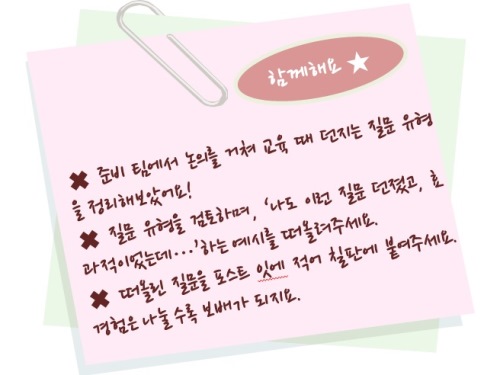 함께해요
준비 팀에서 논의를 거쳐 교육 때 던지는 질문 유형
을 정리해보았어요!
질문 유형을 검토하며, ‘나도 이런 질문 던졌고, 효
과적이었는데...’하는 예시를 떠올려주세요.
떠올린 질문을 포스트 잇에 적어 칠판에 붙여주세요.
경험은 나눌 수록 보배가 되지요.